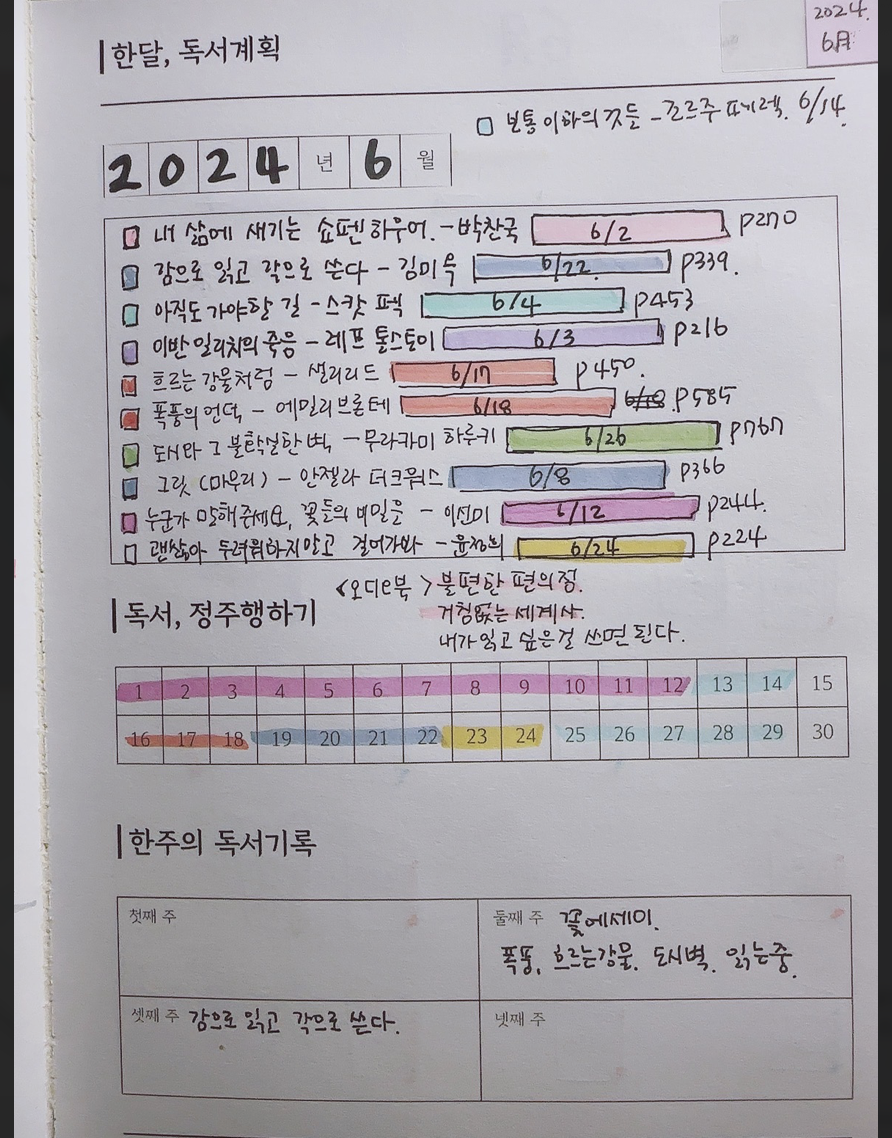 2024.
6月
한달, 독서계획
보통 이하의 것들 - 조르주 페렉. 6/14.
2024년 6월
내 삶에 새기는 쇼펜하우어. - 박찬국 6/2 p270
감으로 읽고 각으로 쓴다 - 김미옥 6/22. p339.
아직도 가야할 길 - 스캇 펙 6/4 p453
이반 일리치의 죽음 - 레프 톨스토이 6/3 p216
흐르는 강물처럼 - 셸리리드 6/17 p450.
폭풍의 언덕 - 에밀리 브론테 6/18 6/18 p585
도시와 그 불확실한 벽 - 무라카미 하루키 6/26 p767
그릿 (마무리) - 안젤라 더크워스 6/8 p366
누군가 말해주세요, 꽃들의 비밀을 - 이선미 6/12 p244.
괜찮아 두려워하지말고 걸어가봐 - 6/24 p224
<오디e북> 불편한 편의점.
거침없는 세계사.
내가 읽고 싶은걸 쓰면 된다.
독서, 정주행하기
1 2 3 4 5 6 7 8 9 10 11 12 13 14 15
16 17 18 19 20 21 22 23 24 25 26 27 28 29 30
한주의 독서기록
첫째 주
둘째 주 꽃에세이.
폭풍, 흐르는강물. 도시벽. 읽는중.
셋째 주 감으로 읽고 각으로 쓴다.
넷째 주